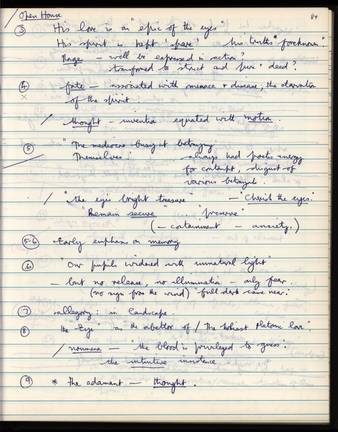 Open House 84
③ His love is an "epic of the eyes"
His spirit is kept 'spare' his truths "foreknown".
Rage - will be expressed in action?
transformed to strict and pure deed?
④ fate — associated with menace + disease, the damnation
of the spirit.
/ thought - invention equated with motion.
⑤ "The mediocre busy at betraying
Themselves" always had poetic energy
for contempt, disgust of
various betrayals.
/ "the eyes bright treasure" — "Cherish the eyes".
Remain secure "preserve"
(— containment — anxiety.)
5-6 Early emphasis on memory
⑥ "Our pupils widened with unnatural light"
— but no release, no illumination - only fear.
(no sign from the wind) - full dark came near.
⑦ allegory: in Landscape.
⑧ the "Eye" is the abettor of / The holiest Platonic love".
/ noumena — "the blood is privileged to guess".
the intuitive
⑨ * The adamant — thought.